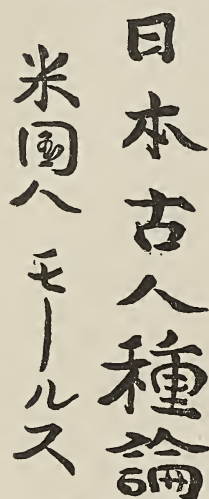 日本古人種論
米国人 モールス